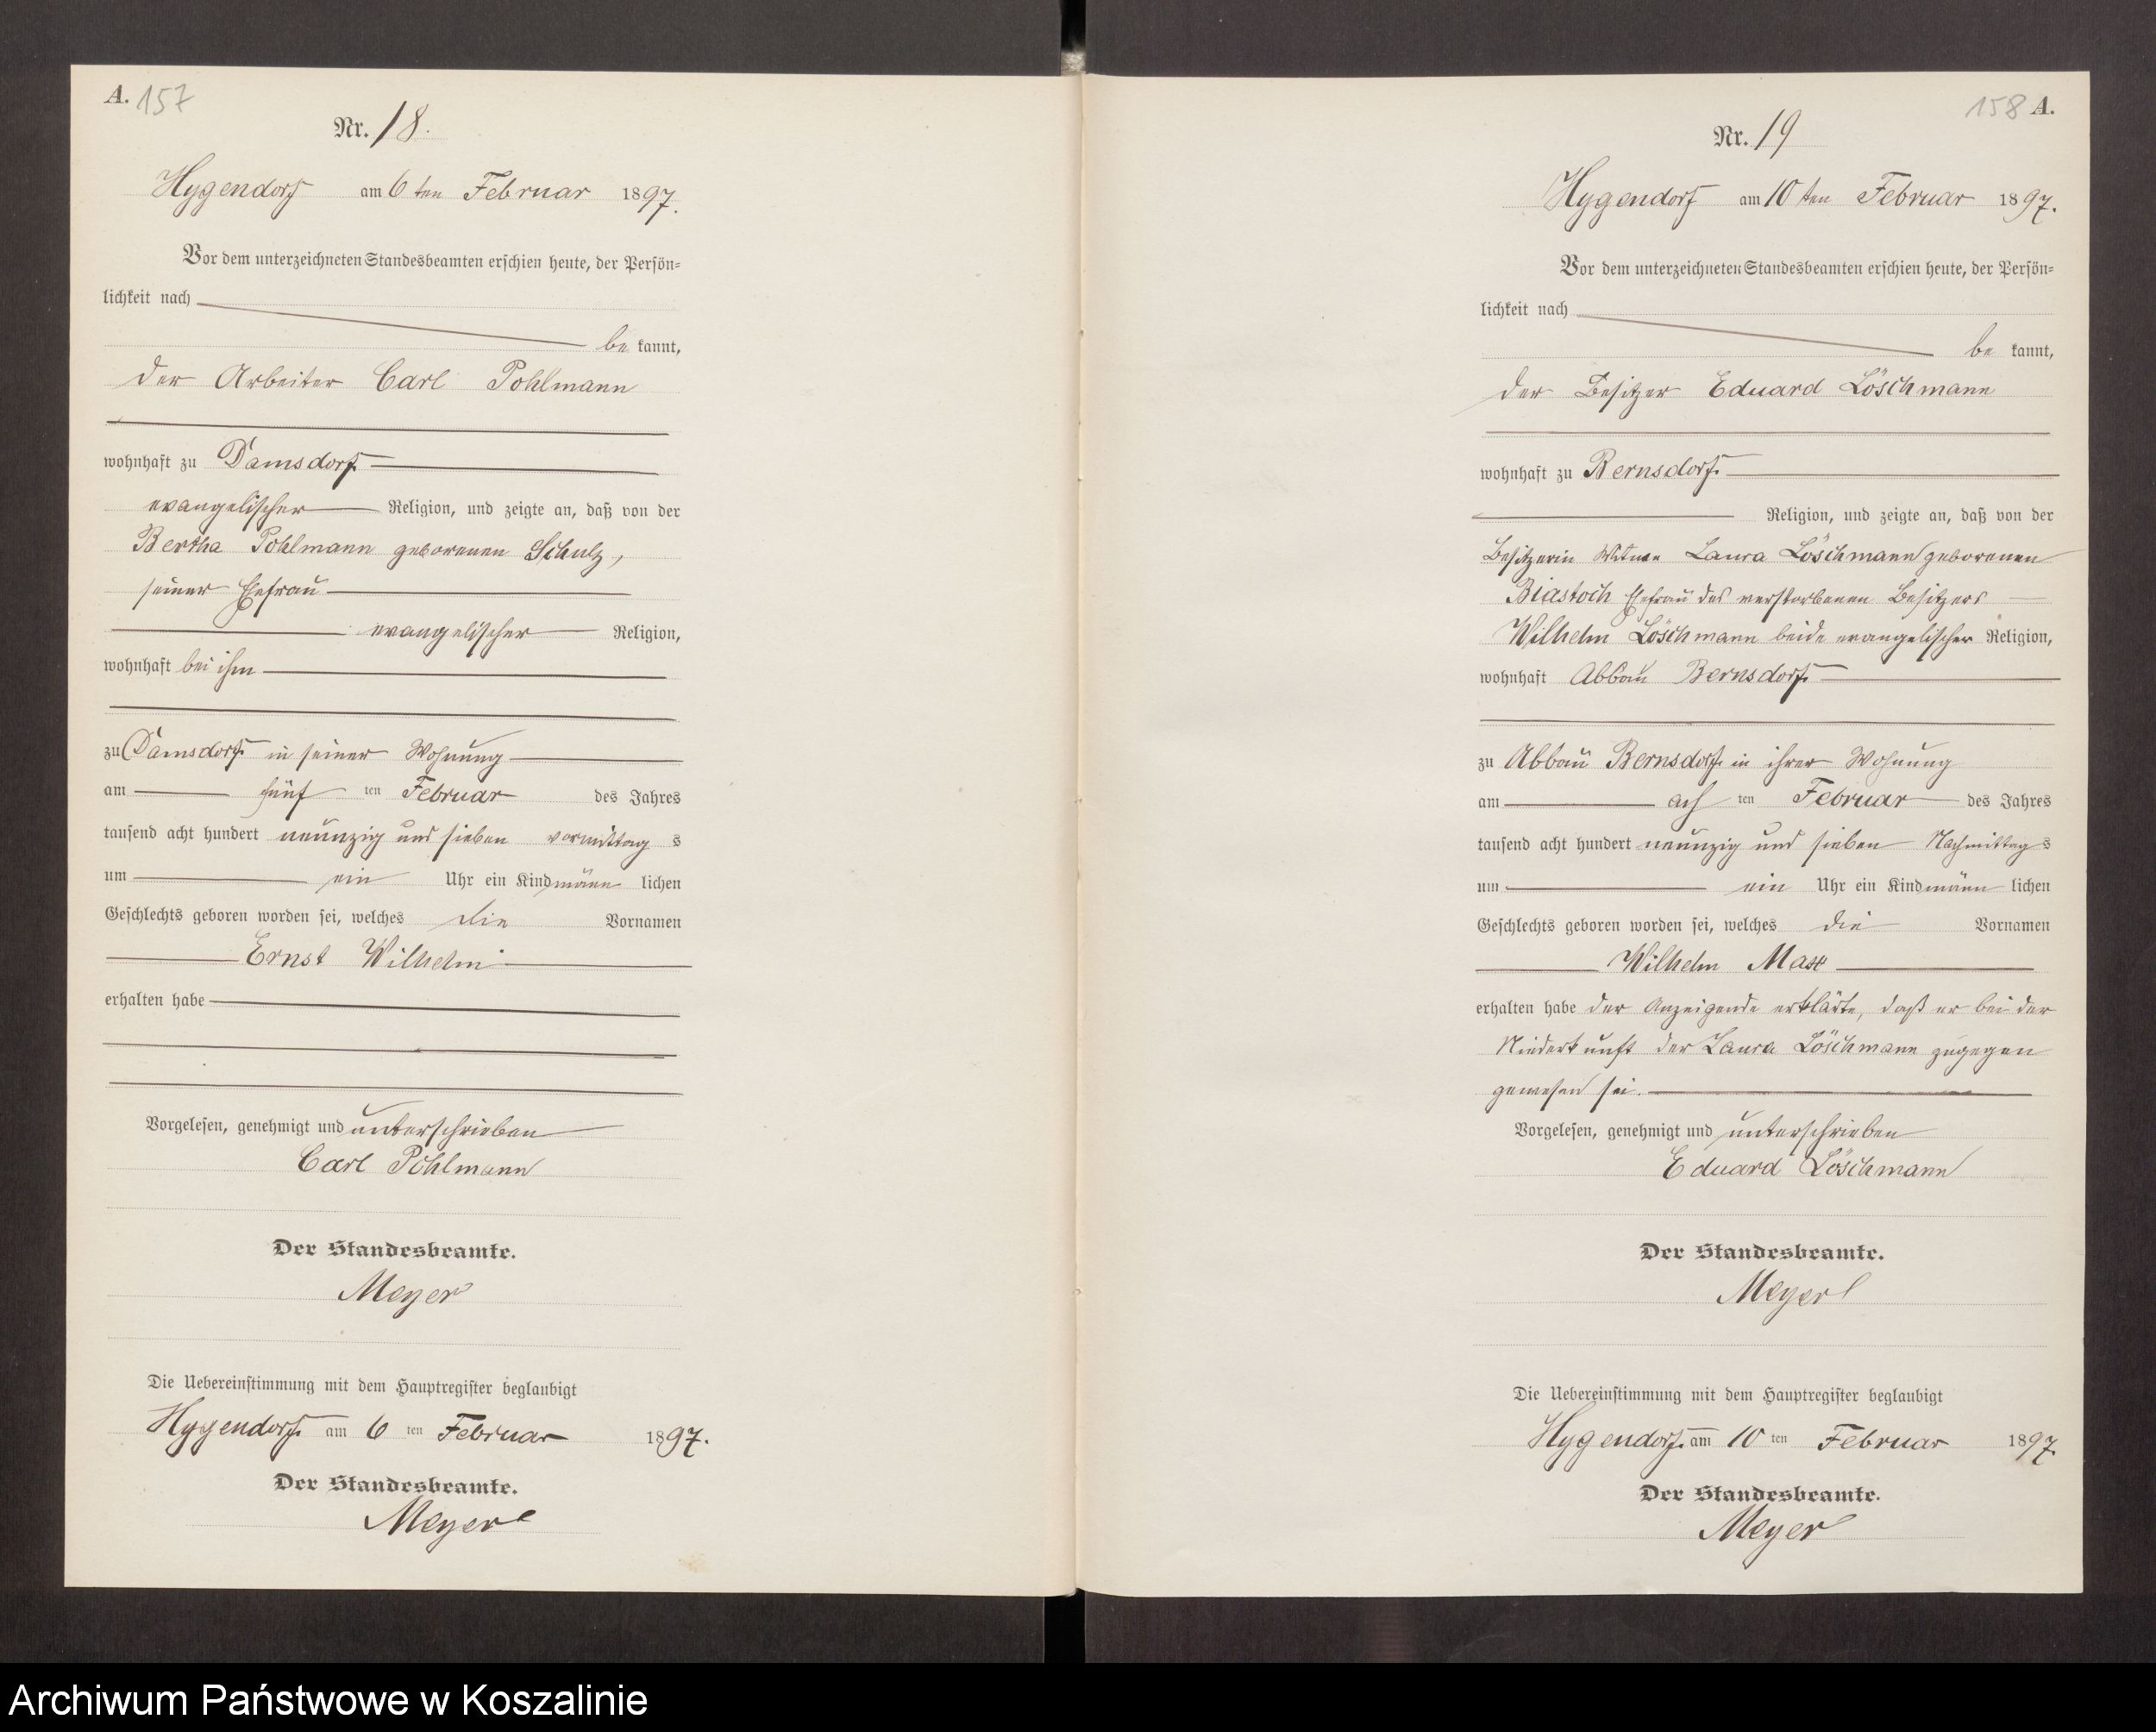 A. 157
Nr. 18.
Hygendorf am 6 ten Februar 1897.
Vor dem unterzeichneten Standesbeamten erschien heute, der Persön=
lichkeit nach
be kannt,
der Arbeiter Carl Pohlmann
wohnhaft zu Damsdorf
evangelischer Religion, und zeigte an, daß von der
Bertha Pohlmann geborenen Schulz,
seiner Ehefrau
evangelischer Religion,
wohnhaft bei ihm
zu Damsdorf in seiner Wohnung
am fünf ten Februar des Jahres
tausend acht hundert neunzig und sieben vormittag s
um ein Uhr ein Kind männ lichen
Geschlechts geboren worden sei, welches die Vornamen
Ernst Wilhelm
erhalten habe
Vorgelesen, genehmigt und unterschrieben
Carl Pohlmann
Der Standesbeamte.
Meyer
Die Uebereinstimmung mit dem Hauptregister beglaubigt
Hygendorf am 6 ten Februar 1897.
Der Standesbeamte.
Meyer
158 A.
Nr. 19
Hygendorf am 10 ten Februar 1897.
Vor dem unterzeichneten Standesbeamten erschien heute, der Persön=
lichkeit nach
be kannt,
der Besitzer Eduard Löschmann
wohnhaft zu Bernsdorf
Religion, und zeigte an, daß von der
Besitzerin Witwe Laura Löschmann geborenen
Biastoch Ehefrau des verstorbenen Besitzers
Wilhelm Löschmann beide evangelischer Religion,
wohnhaft Abbau Bernsdorf
zu Abbau Bernsdorf in ihrer Wohnung
am ach ten Februar des Jahres
tausend acht hundert neunzig und sieben Nachmittag s
um ein Uhr ein Kind männ lichen
Geschlechts geboren worden sei, welches die Vornamen
Wilhelm Max
erhalten habe der Anzeigende erklärte, daß er bei der
Niederkunft der Laura Löschmann zugegen
gewesen sei.
Vorgelesen, genehmigt und unterschrieben
Eduard Löschmann
Der Standesbeamte.
Meyer
Die Uebereinstimmung mit dem Hauptregister beglaubigt
Hygendorf am 10 ten Februar 1897.
Der Standesbeamte.
Meyer
Archiwum Państwowe w Koszalinie